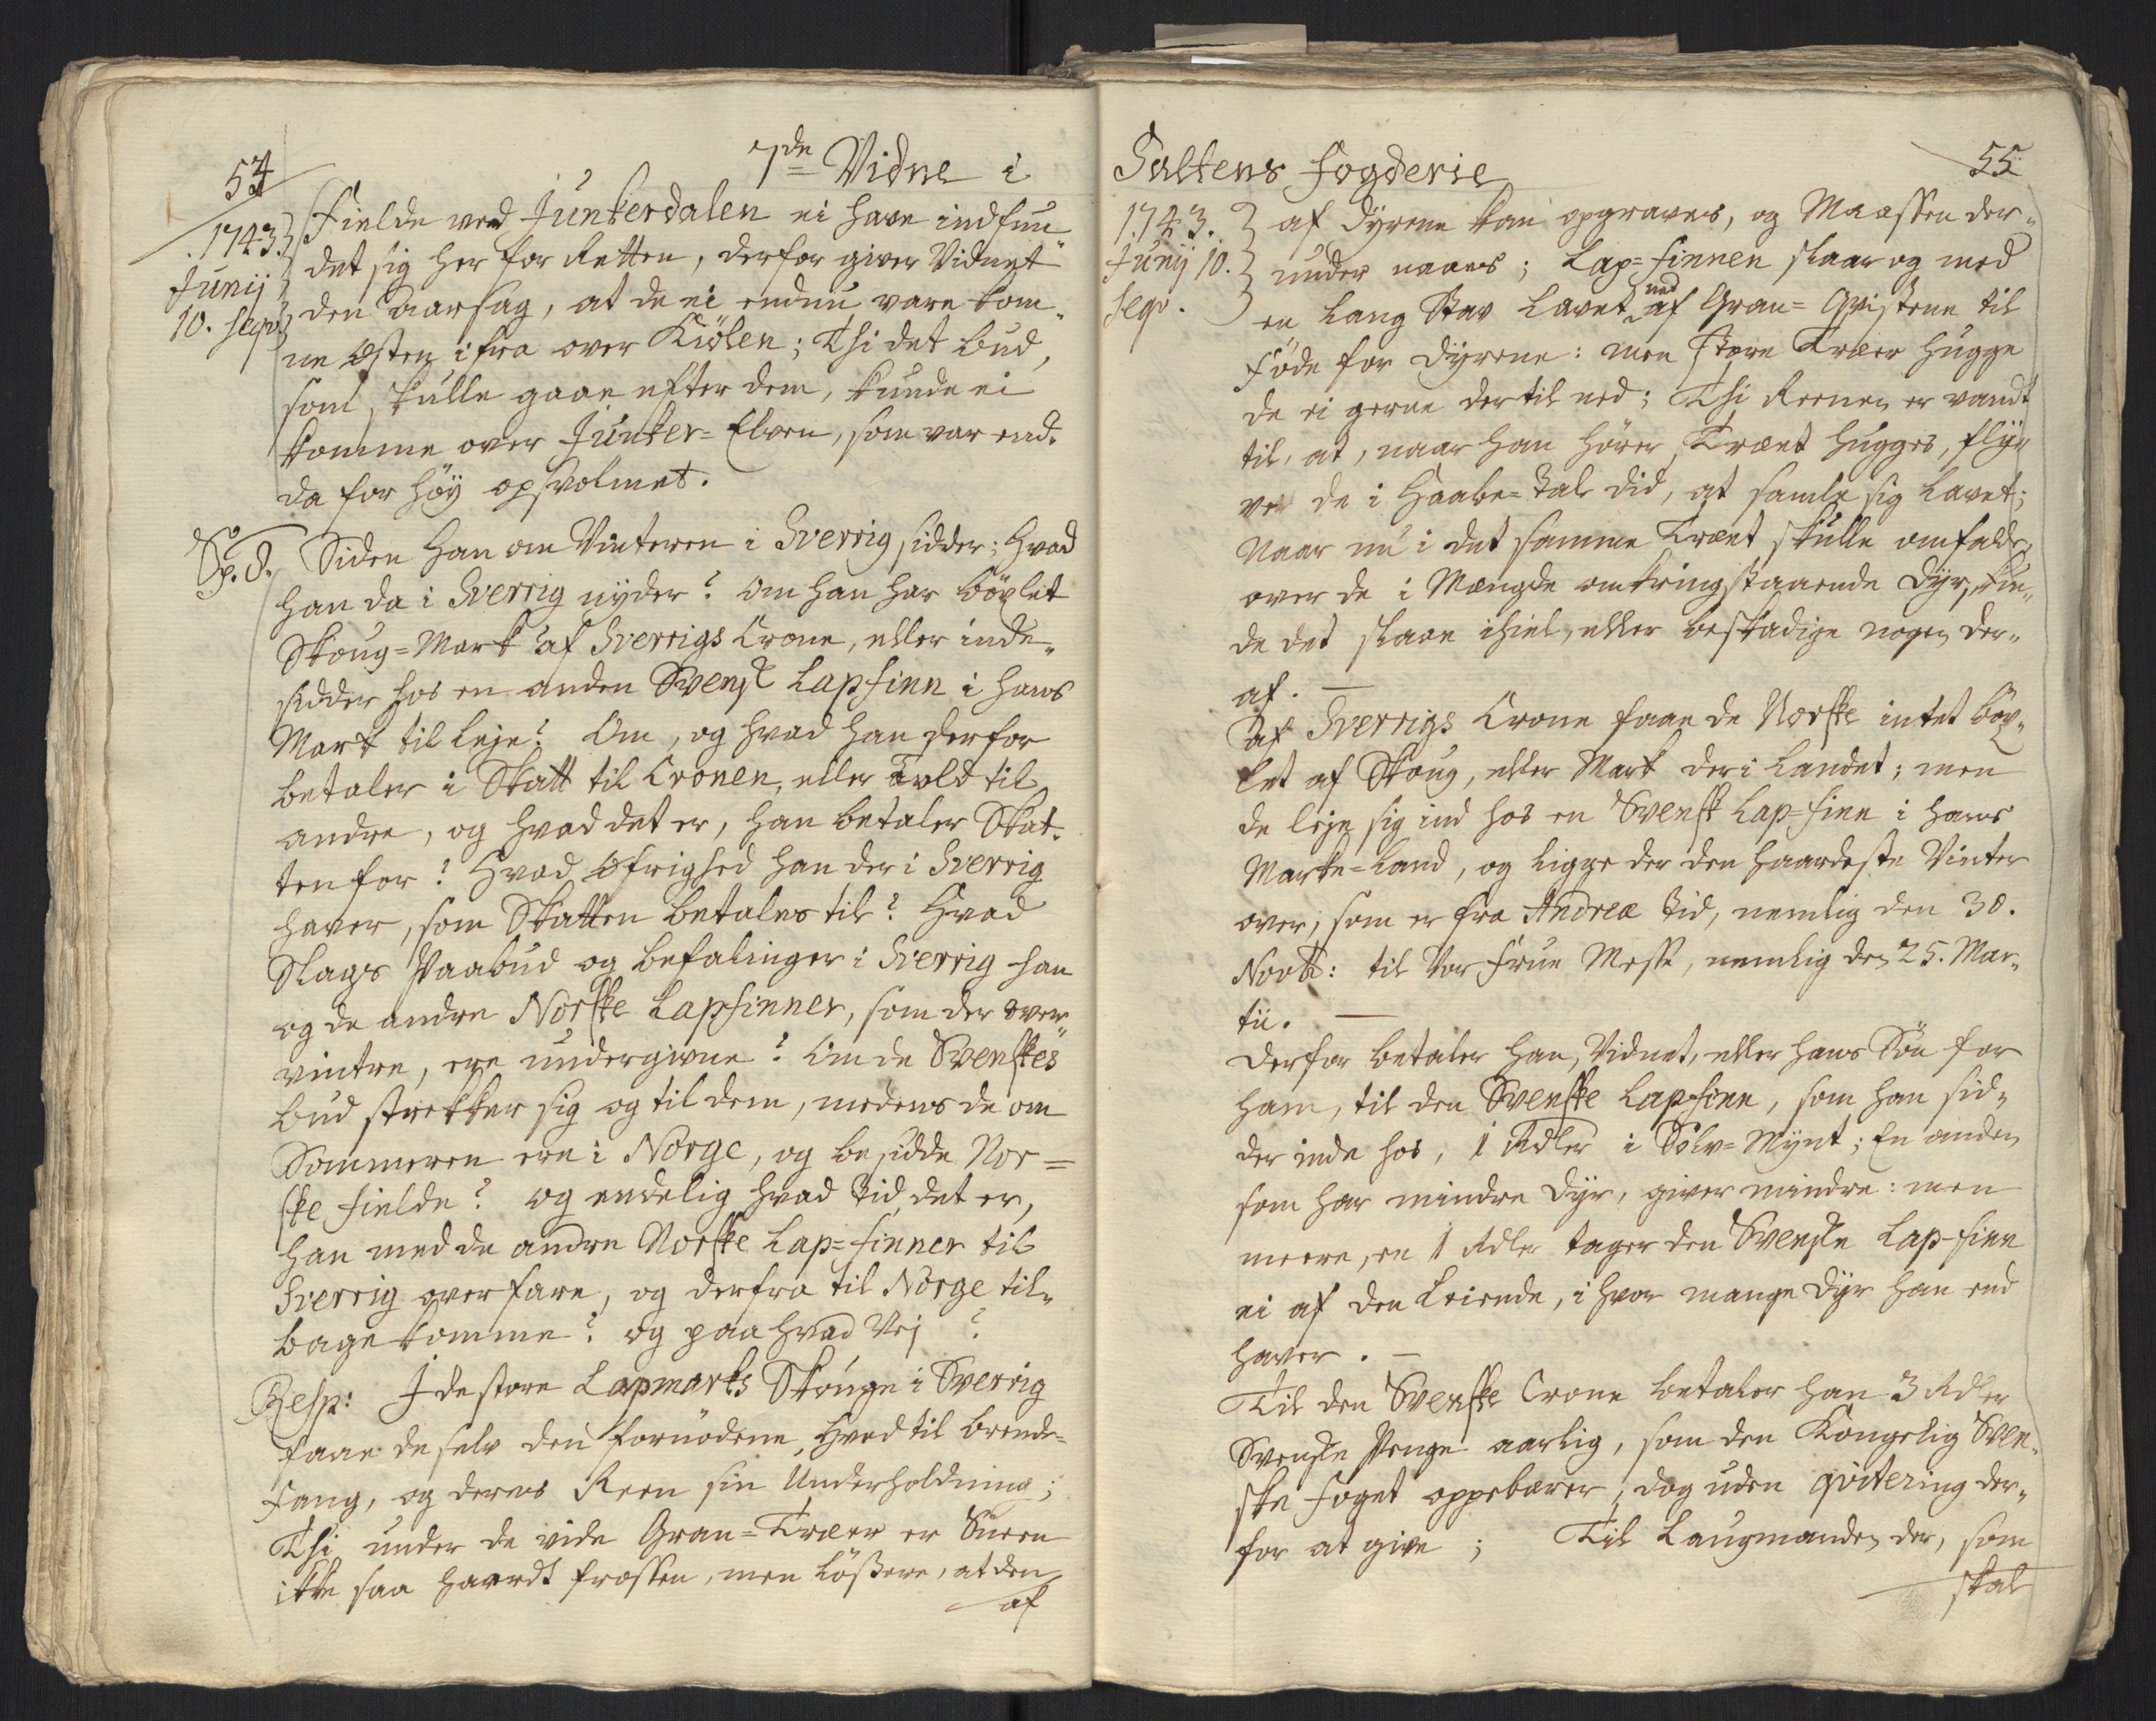 54
7de Vidne i
1743.
Junij
10. seqv.
Fielde ved Junkerdalen ei have indfun„
det sig her for Retten, derfor giver Vidnet
den aarsag, at de ei endnu vare kom„
ne Østen ifra over Kiölen; Thi det bud,
som skulle gaae efter dem, kunde ei
komme over Junker=Elven, som var end„
da for höy opsvolmet.
Sp. 8. Siden han om Vinteren i Sverrig sidder; Hvad
han da i Sverrig nyder? Om han har böxlet
Skoug=Mark af Sverrigs Crone, eller inde„
sidder hos en anden Svensk Lapfinn i hans
Mark til leje? Om, og hvad han derfor
betaler i Skatt til Cronen, eller Told til
andre, og hvad det er, han betaler Skat„
ten for? Hvad Øfrighed han der i Sverrig
haver, som Skatten betales til? Hvad
Slags Paabud og befalinger i Sverrig han
og de andre Norske Lapfinner, som der over„
vintre, ere undergivne? Om de Svenskes
bud strekker sig og til dem, medens de om
Sommeren ere i Norge, og besidde Nor=
ske Fielde? og endelig hvad Tid det er,
han med de andre Norske Lap=Finner til
Sverrig overfare, og derfra til Norge til„
bage komme? og paa hvad Vej?
Resp: I de store Lapmarks Skouge i Sverrig
faae de selv den fornödene Ved til brende=
fang, og deres Reen sin Underholdning;
Thi under de vide Gran=Træer er Sneen
ikke saa haardt frossen, men lößere, at den
af
Saltens Fogderie
55
1743.
Junij 10.
seqv.
af Dyrene kan opgraves, og Maassen der„
under naaes; Lap=Finnen slaar og med
en lang Stav Lavet ned af Gran=Qvistene til
Föde for Dyrene: men store Træer hugge
de ei gerne dertil ned; Thi Reenen er vandt
til, at, naar han hörer Træet hugges, flye„
ve de i Haabe=Tal did, at samle sig Lavet;
Naar nu i det samme Træet skulle omfalde
over de i Mængde omkringstaaende Dyr, kun„
de det slaae ihiel, eller beskadige nogen der„
af. —
Af Sverrigs Crone faae de Norske intet böx„
let af Skoug, eller Mark der i Landet; men
de leje sig ind hos en Svensk Lap=Finn i hans
Marke=Land, og ligge der den haardeste Vinter
over, som er fra Andreæ Tid, nemlig den 30.
Novb: til Vor Frue Messe, nemlig den 25. Mar„
tii. —
Derfor betaler han, Vidnet, eller hans Sön for
ham, til den Svenske Lapfinn, som han sid„
der inde hos, 1 Rdler i Sölv=Mynt; En anden
som har mindre Dyr, giver mindre: men
meere, en 1 Rdler tager den Svenske Lap=Finn
ei af den Leiende, i hvor mange Dyr han end
haver. —
Til den Svenske Crone betaler han 3 Rdler
Svenske Penge aarlig, som den Kongelig Sven„
ske Foget oppebærer, dog uden qvitering der„
for at give; Til Laugmanden der, som
skal